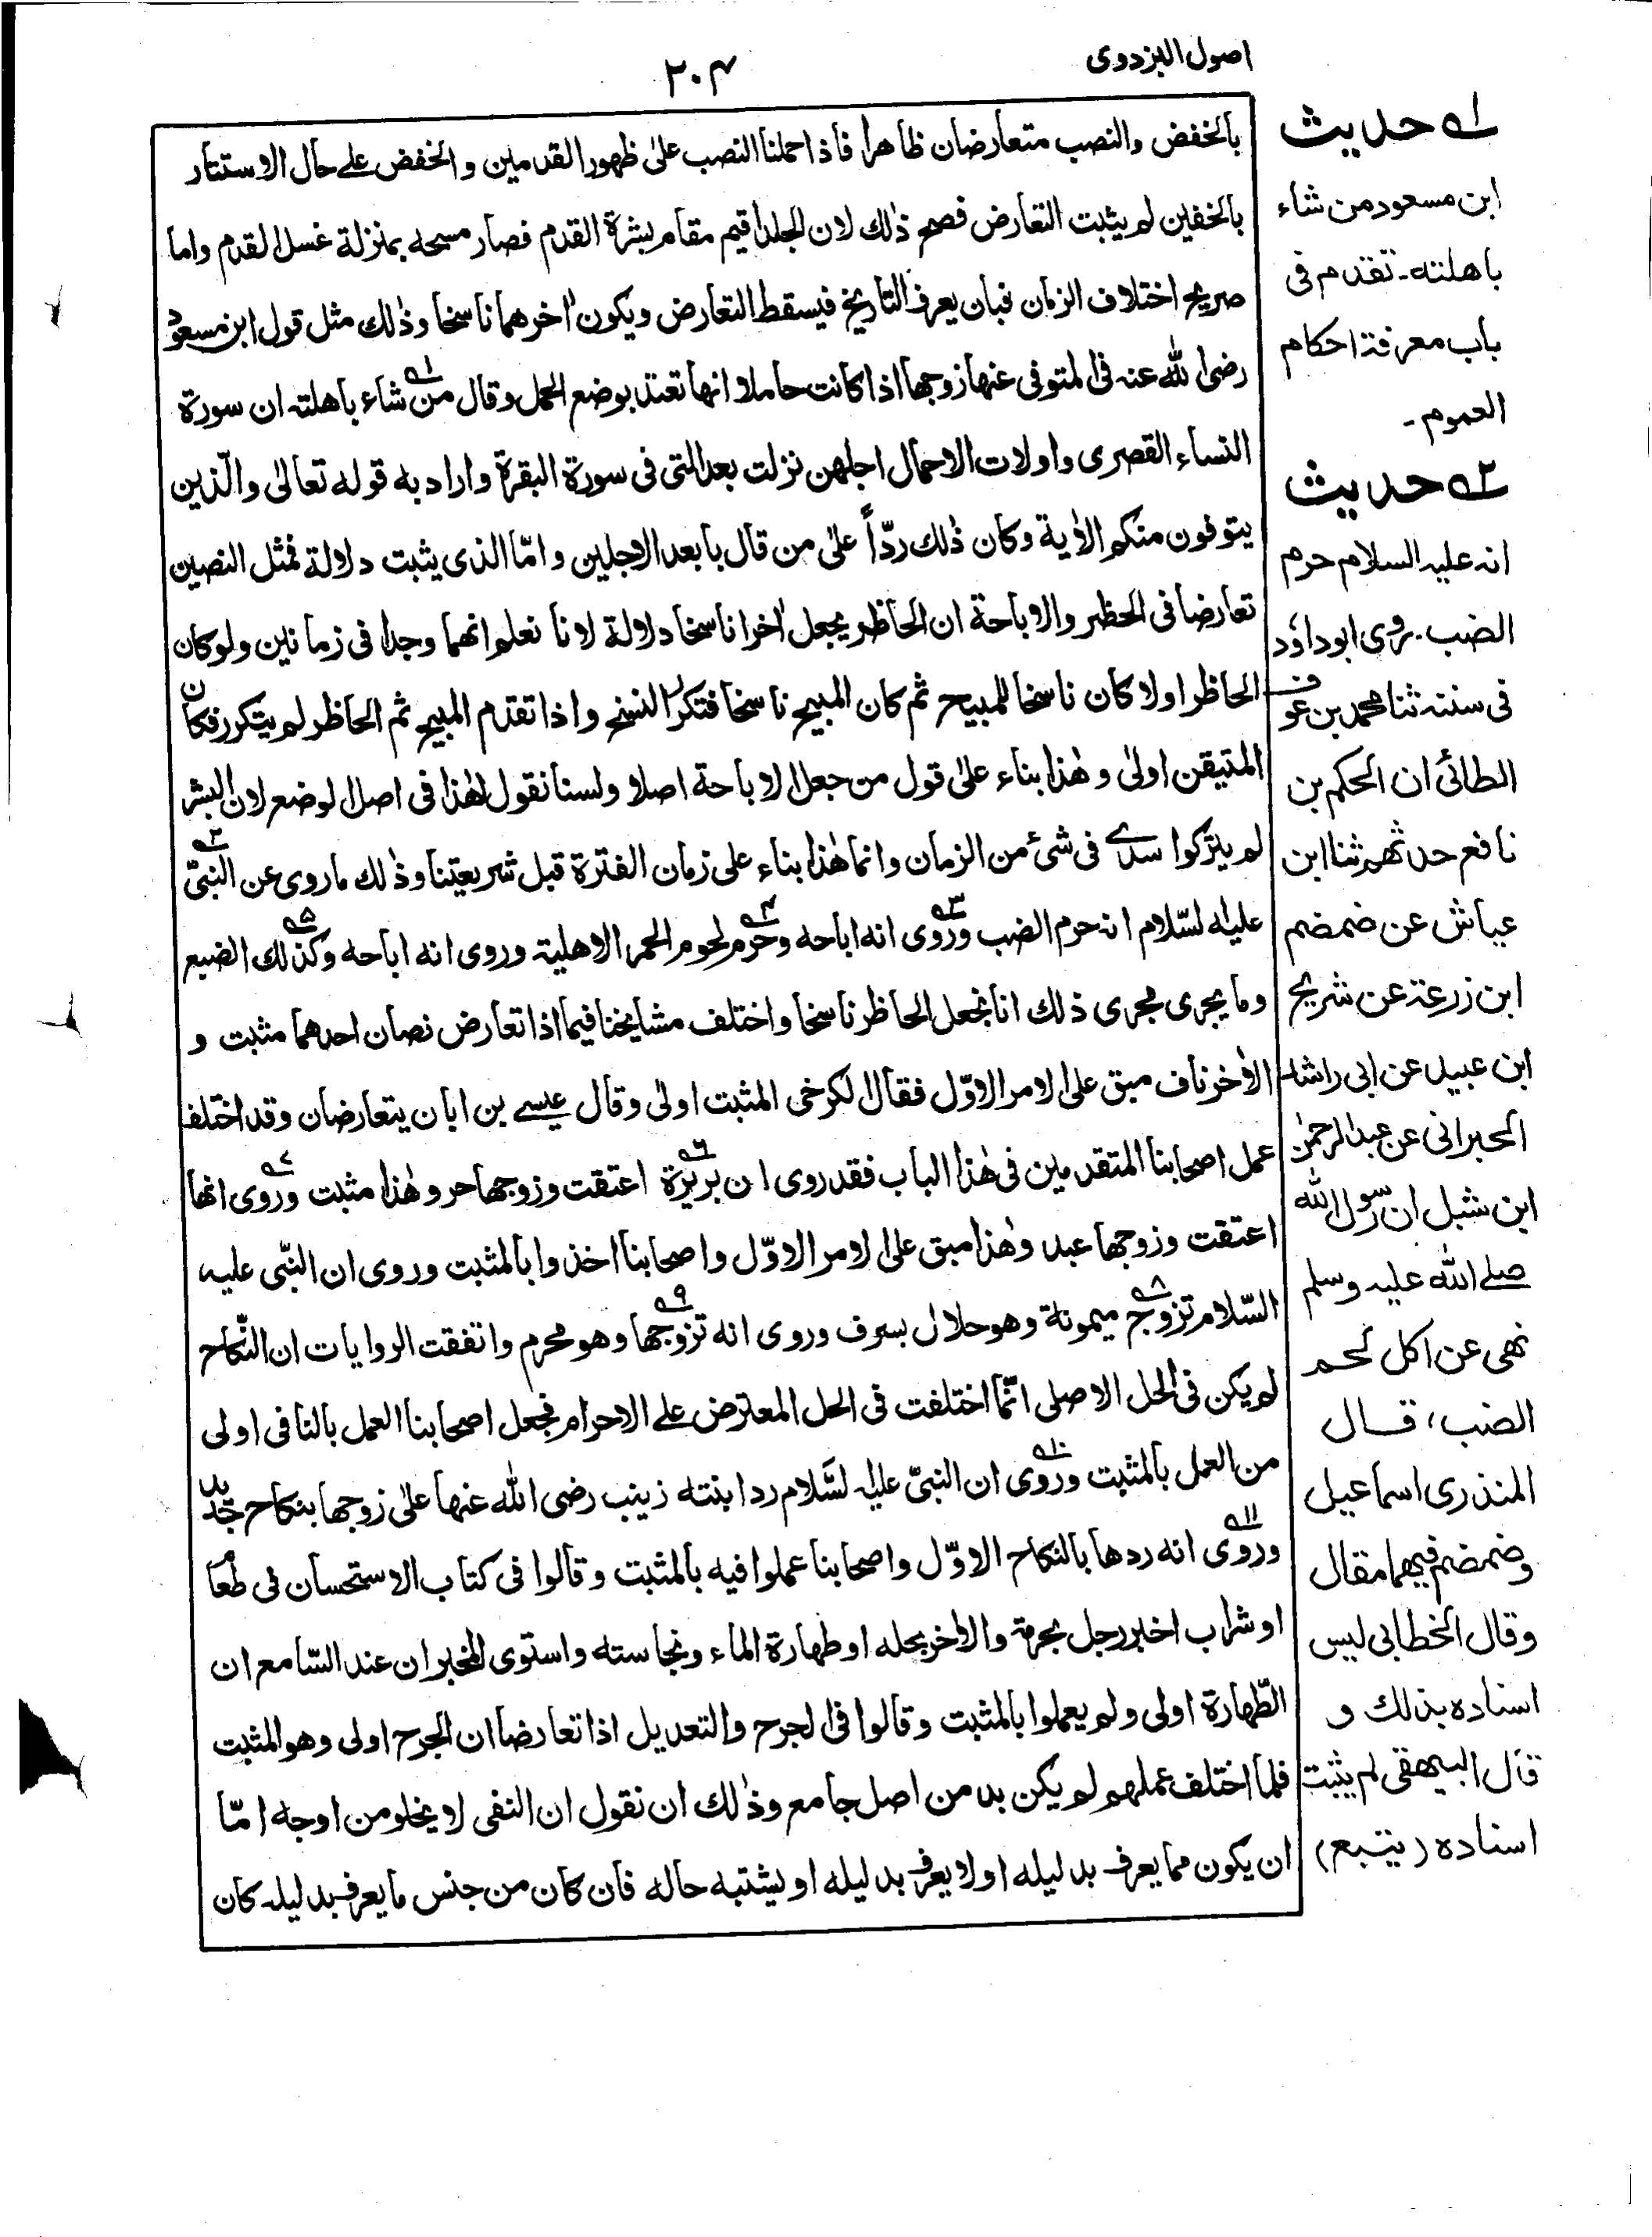 اصول البزدوی
۲۰۴
بالخفض والنصب متعارضان ظاهرا فاذا حملنا النصب علىٰ ظهور القدمين والخفض على حال الاستتار
بالخفين لم يثبت التعارض فصح ذٰلك لان الجلد اقيم مقام بشرة القدم فصار مسحه بمنزلة غسل القدم واما
صريح اختلاف الزمان فبان يعرف التاريخ فيسقط التعارض ويكون اٰخرهما ناسخا وذٰلك مثل قول ابن مسعود
رضى الله عنه فى المتوفى عنها زوجها اذا كانت حاملا انها تعتد بوضع الحمل وقال من له۱ شاء باهلته ان سورة
النساء القصرى واولات الاحمال اجلهن نزلت بعد التى فى سورة البقرة واراد به قوله تعالىٰ والّذين
يتوفون منكم الاٰية وكان ذٰلك ردّاً علىٰ من قال بابعد الاجلين وامّا الذى يثبت دلالة فمثل النصين
تعارضا فى الحظر والاباحة ان الحاظر يجعل اٰخرا ناسخا دلالة لانا نعلم انهما وجدا فى زمانين ولو كان
الحاظر اولا كان ناسخا للمبيح ثم كان المبيح ناسخا فتكرر النسخ واذا تقدم المبيح ثم الحاظر لم يتكرر فكان
المتيقن اولىٰ وهٰذا بناء علىٰ قول من جعل الاباحة اصلا ولسنا نقول بهٰذا فى اصل الوضع لان البشر
لم يتركوا سدے فى شئ من الزمان وانما هٰذا بناء على زمان الفترة قبل شريعتنا وذٰلك ماروى عن النبىّ ۲
عليه السّلام انه حرم الضب وروى ۳ انه اباحه وحرم ۴ لحوم الحمر الاهلية وروى انه اباحه وكذٰلك ۵ الضبع
وما يجرى مجرى ذٰلك انا نجعل الحاظر ناسخا واختلف مشايخنا فيما اذا تعارض نصان احدهما مثبت و
الاٰخر ناف مبق على الامر الاوّل فقال الكرخى المثبت اولىٰ وقال عيسے بن ابان يتعارضان وقد اختلف
عمل اصحابنا المتقدمين فى هٰذا الباب فقد روى ان بريرة ۶ اعتقت وزوجها حر وهٰذا مثبت وروى ۷ انها
اعتقت وزوجها عبد وهٰذا مبق على الامر الاوّل واصحابنا اخذوا بالمثبت وروى ان النّبى عليه
السّلام تزوج ۸ ميمونة وهو حلال بسرف وروى انه تزوجها ۹ وهو محرم واتفقت الروايات ان النّكاح
لم يكن فى الحل الاصلى انّما اختلفت فى الحل المعترض على الاحرام فجعل اصحابنا العمل بالنافى اولى
من العمل بالمثبت وروى ۱۰ ان النبىّ عليه السّلام رد ابنته زينب رضى الله عنها علىٰ زوجها بنكاح جديد
وروى ۱۱ انه ردها بالنكاح الاوّل واصحابنا عملوا فيه بالمثبت وقالوا فى كتاب الاستحسان فى طعام
او شراب اخبر رجل بحرمته والاٰخر بحله او طهارة الماء ونجاسته واستوى المخبران عند السّامع ان
الطّهارة اولى ولم يعملوا بالمثبت وقالوا فى الجرح والتعديل اذا تعارضا ان الجرح اولى وهو المثبت
فلما اختلف عملهم لم يكن بد من اصل جامع وذٰلك ان نقول ان النفى لا يخلو من اوجه امّا
ان يكون مما يعرف بدليله او لا يعرف بدليله او يشتبه حاله فان كان من جنس ما يعرف بدليله كان
۱ حديث
ابن مسعود من شاء
باهلته۔ تقدم فى
باب معرفة احكام
العموم۔
۲ حديث
انه عليه السلام حرم
الضب۔ روى ابو داؤد
فى سننه ثنا محمد بن عوف
الطائى ان الحكم بن
نافع حدثهم ثنا ابن
عياش عن ضمضم
ابن زرعة عن شريح
ابن عبيد عن ابى راشد
الحبرانى عن عبد الرحمٰن
ابن شبل ان رسول الله
صلے الله عليه وسلم
نهى عن اكل لحم
الضب، قال
المنذرى اسماعيل
وضمضم فيهما مقال
وقال الخطابى ليس
اسناده بذلك و
قال البيهقى لم يثبت
اسناده (يتبع)